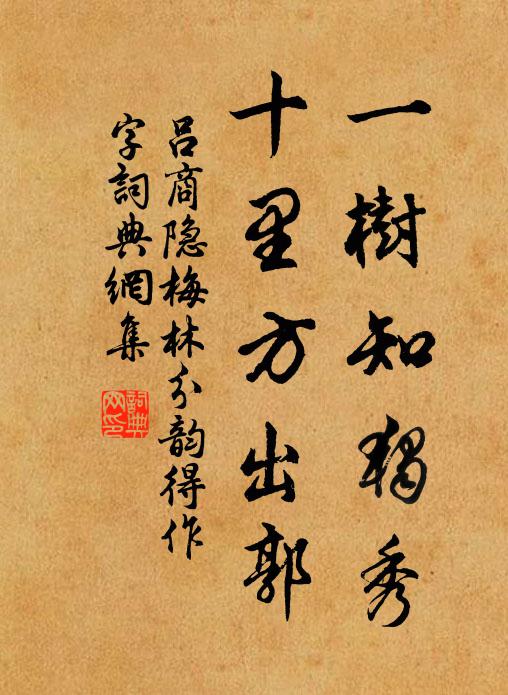 一樹知獨秀
十里方出郭
吕商隐梅林分韵得作
字詞典網集
詞典
网印